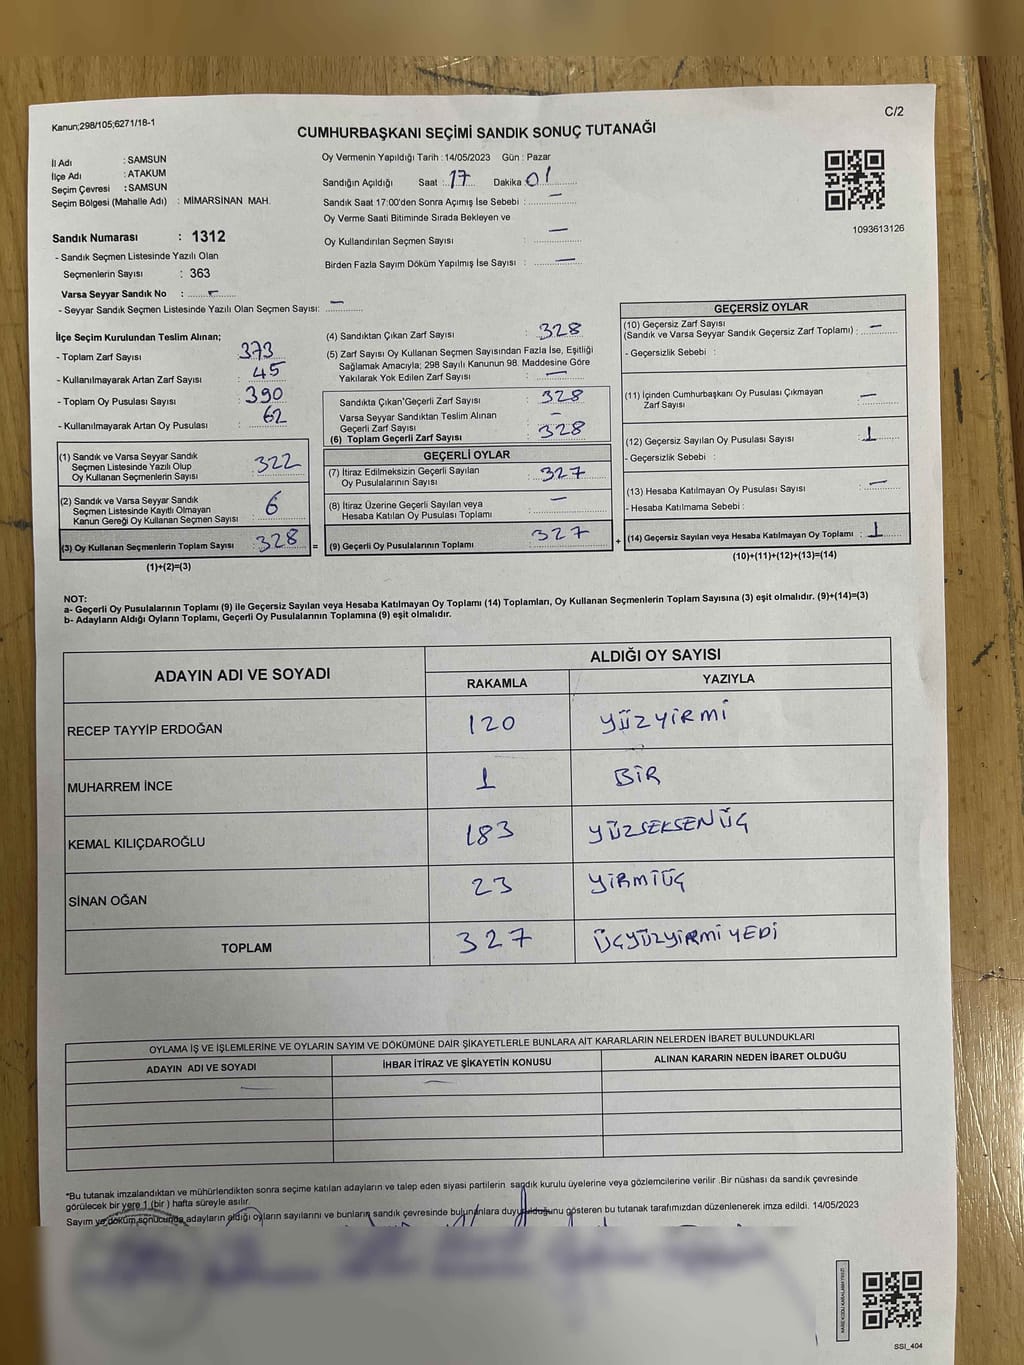 Kanun;298/105;6271/18-1
C/2
CUMHURBAŞKANI SEÇİMİ SANDIK SONUÇ TUTANAĞI
İl Adı : SAMSUN
İlçe Adı : ATAKUM
Seçim Çevresi : SAMSUN
Seçim Bölgesi (Mahalle Adı) : MİMARSİNAN MAH.
Oy Vermenin Yapıldığı Tarih : 14/05/2023 Gün : Pazar
Sandığın Açıldığı Saat : 17 Dakika 01
Sandık Saat 17:00'den Sonra Açımış İse Sebebi : —
Oy Verme Saati Bitiminde Sırada Bekleyen ve
Oy Kullandırılan Seçmen Sayısı : —
Birden Fazla Sayım Döküm Yapılmış İse Sayısı : —
1093613126
Sandık Numarası : 1312
- Sandık Seçmen Listesinde Yazılı Olan
Seçmenlerin Sayısı : 363
Varsa Seyyar Sandık No : —
- Seyyar Sandık Seçmen Listesinde Yazılı Olan Seçmen Sayısı: —
İlçe Seçim Kurulundan Teslim Alınan;
- Toplam Zarf Sayısı : 373
- Kullanılmayarak Artan Zarf Sayısı : 45
- Toplam Oy Pusulası Sayısı : 390
- Kullanılmayarak Artan Oy Pusulası : 62
(1) Sandık ve Varsa Seyyar Sandık
Seçmen Listesinde Yazılı Olup
Oy Kullanan Seçmenlerin Sayısı : 322
(2) Sandık ve Varsa Seyyar Sandık
Seçmen Listesinde Kayıtlı Olmayan
Kanun Gereği Oy Kullanan Seçmen Sayısı : 6
(3) Oy Kullanan Seçmenlerin Toplam Sayısı : 328 =
(1)+(2)=(3)
(4) Sandıktan Çıkan Zarf Sayısı : 328
(5) Zarf Sayısı Oy Kullanan Seçmen Sayısından Fazla İse, Eşitliği
Sağlamak Amacıyla; 298 Sayılı Kanunun 98. Maddesine Göre
Yakılarak Yok Edilen Zarf Sayısı : —
Sandıkta Çıkan Geçerli Zarf Sayısı : 328
Varsa Seyyar Sandıktan Teslim Alınan
Geçerli Zarf Sayısı : —
(6) Toplam Geçerli Zarf Sayısı : 328
GEÇERLİ OYLAR
(7) İtiraz Edilmeksizin Geçerli Sayılan
Oy Pusulalarının Sayısı : 327
(8) İtiraz Üzerine Geçerli Sayılan veya
Hesaba Katılan Oy Pusulası Toplamı : —
(9) Geçerli Oy Pusulalarının Toplamı : 327 +
GEÇERSİZ OYLAR
(10) Geçersiz Zarf Sayısı
(Sandık ve Varsa Seyyar Sandık Geçersiz Zarf Toplamı) : —
- Geçersizlik Sebebi :
(11) İçinden Cumhurbaşkanı Oy Pusulası Çıkmayan
Zarf Sayısı : —
(12) Geçersiz Sayılan Oy Pusulası Sayısı : 1
- Geçersizlik Sebebi :
(13) Hesaba Katılmayan Oy Pusulası Sayısı : —
- Hesaba Katılmama Sebebi :
(14) Geçersiz Sayılan veya Hesaba Katılmayan Oy Toplamı : 1
(10)+(11)+(12)+(13)=(14)
NOT:
a- Geçerli Oy Pusulalarının Toplamı (9) ile Geçersiz Sayılan veya Hesaba Katılmayan Oy Toplamı (14) Toplamları, Oy Kullanan Seçmenlerin Toplam Sayısına (3) eşit olmalıdır. (9)+(14)=(3)
b- Adayların Aldığı Oyların Toplamı, Geçerli Oy Pusulalarının Toplamına (9) eşit olmalıdır.
ADAYIN ADI VE SOYADI
ALDIĞI OY SAYISI
RAKAMLA YAZIYLA
RECEP TAYYİP ERDOĞAN 120 YÜZYİRMİ
MUHARREM İNCE 1 BİR
KEMAL KILIÇDAROĞLU 183 YÜZSEKSENÜÇ
SİNAN OĞAN 23 YİRMİÜÇ
TOPLAM 327 ÜÇYÜZYİRMİYEDİ
OYLAMA İŞ VE İŞLEMLERİNE VE OYLARIN SAYIM VE DÖKÜMÜNE DAİR ŞİKAYETLERLE BUNLARA AİT KARARLARIN NELERDEN İBARET BULUNDUKLARI
ADAYIN ADI VE SOYADI İHBAR İTİRAZ VE ŞİKAYETİN KONUSU ALINAN KARARIN NEDEN İBARET OLDUĞU
*Bu tutanak imzalandıktan ve mühürlendikten sonra seçime katılan adayların ve talep eden siyasi partilerin sandık kurulu üyelerine veya gözlemcilerine verilir .Bir nüshası da sandık çevresinde
görülecek bir yere 1 (bir ) hafta süreyle asılır.
Sayım ve döküm sonucunda adayların aldığı oyların sayılarını ve bunların sandık çevresinde bulunanlara duyurulduğunu gösteren bu tutanak tarafımızdan düzenlenerek imza edildi. 14/05/2023
SSI_404